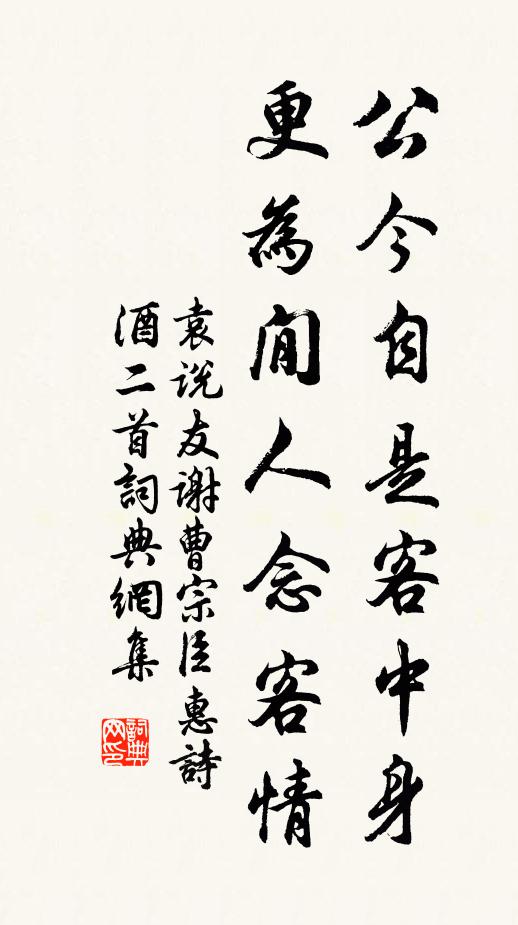 公今自是客中身
更為閒人念客情
袁說友謝曹宗臣惠詩
酒二首詞典網集
詞典網印